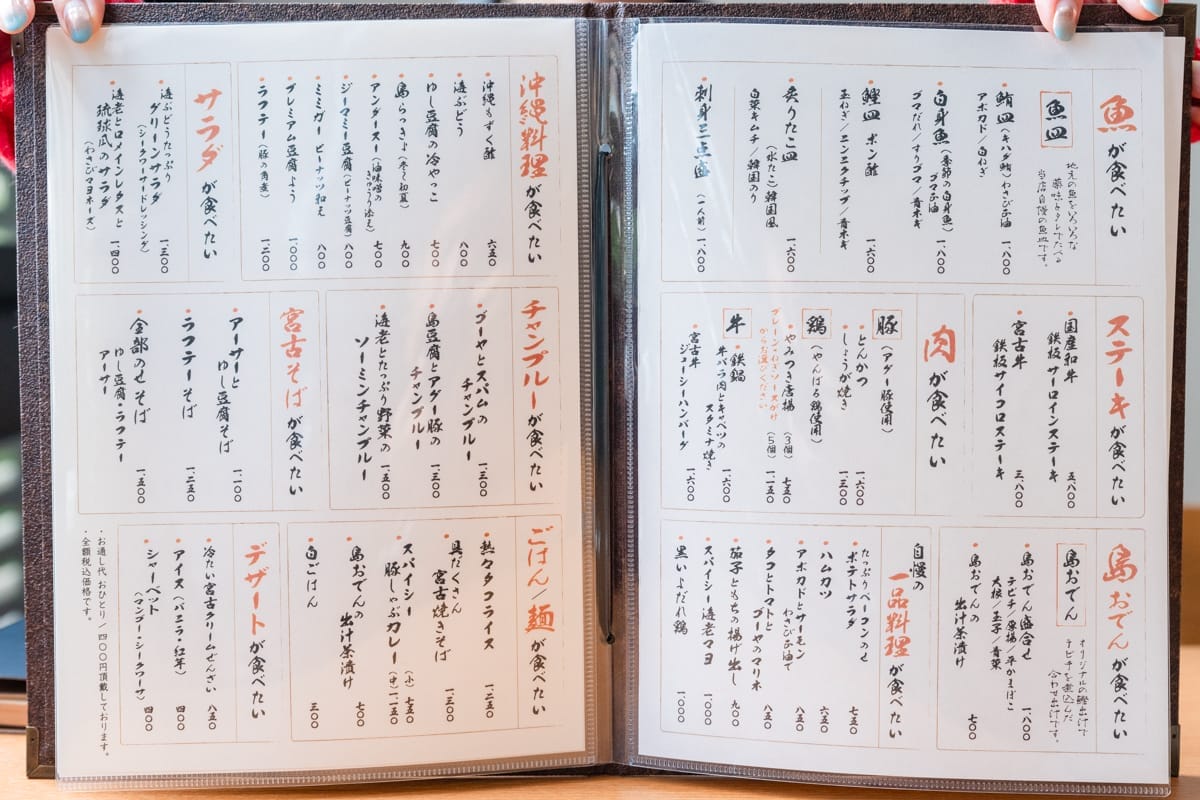 魚が食べたい
魚皿
地元の魚をいろいろな
薬味とタレでたべる
当店自慢の魚皿です。
鮪皿（キハダ鮪）わさび正油 一、八〇〇
アボカド／白ねぎ
白身魚（季節の白身魚）ゴマ正油 一、八〇〇
ゴマだれ／すりゴマ／青ネギ
鰹皿 ポン酢 一、六〇〇
玉ねぎ／ニンニクチップ／青ネギ
炙りたこ皿（水たこ）韓国風 一、六〇〇
白菜キムチ／韓国のり
刺身三点盛（一人前）一、八〇〇
ステーキが食べたい
国産和牛
鉄板サーロインステーキ 五、八〇〇
宮古牛
鉄板サイコロステーキ 三、八〇〇
肉が食べたい
豚（アグー豚使用）
とんかつ 一、六〇〇
しょうが焼き 一、三〇〇
鶏（やんばる鶏使用）
やみつき唐揚（3個）七五〇
（5個）一、一五〇
プレーン／ねぎソースがけ
からお選びください
牛
鉄鍋
牛バラ肉とキャベツの
スタミナ焼き 一、六〇〇
宮古牛
ジューシーハンバーグ 一、六〇〇
島おでんが食べたい
島おでん
オリジナルの鰹出汁で
テビチを煮込んだ
合わせ出汁です。
島おでん盛合せ 一、八〇〇
テビチ／厚揚／平かまぼこ
大根／玉子／青菜
島おでんの
出汁茶漬け 七〇〇
自慢の
一品料理が食べたい
たっぷりベーコンのせ
ポテトサラダ 七五〇
ハムカツ 六五〇
アボカドとサーモン
わさび正油で 八五〇
タコとトマトと
ゴーヤのマリネ 八五〇
茄子ともちの揚げ出し 九〇〇
スパイシー海老マヨ 一、〇〇〇
黒いよだれ鶏 一、〇〇〇
沖縄料理が食べたい
沖縄もずく酢 六五〇
海ぶどう 八〇〇
ゆし豆腐の冷やっこ 七〇〇
島らっきょ（冬〜初夏）九〇〇
アンダースー（油味噌の
きゅうり添え）七〇〇
ジーマミー豆腐（ピーナッツ豆腐）八〇〇
ミミガー ピーナッツ和え 八〇〇
プレミアム豆腐よう 一、〇〇〇
ラフテー（豚の角煮）一、二〇〇
サラダが食べたい
海ぶどうたっぷり
グリーンサラダ 一、三〇〇
（シークワーサードレッシング）
海老とロメインレタスと
琉球瓜のサラダ 一、四〇〇
（わさびマヨネーズ）
チャンプルーが食べたい
ゴーヤとスパムの
チャンプルー 一、三〇〇
島豆腐とアグー豚の
チャンプルー 一、三〇〇
海老とたっぷり野菜の
ソーミンチャンプルー 一、五〇〇
宮古そばが食べたい
アーサーと
ゆし豆腐そば 一、一〇〇
ラフテーそば 一、二五〇
全部のせそば 一、五〇〇
ゆし豆腐・ラフテー
アーサー
ごはん／麺が食べたい
熱々タコライス 一、二五〇
具だくさん
宮古焼きそば 一、三〇〇
スパイシー
豚しゃぶカレー（小）七五〇
（中）一、一五〇
島おでんの
出汁茶漬け 七〇〇
白ごはん 三〇〇
デザートが食べたい
冷たい宮古クリームぜんざい 八五〇
アイス（バニラ・紅芋）四〇〇
シャーベット
（マンゴー・シークワーサー）四〇〇
・お通し代 おひとり／四〇〇円頂戴しております。
・全額税込価格です。